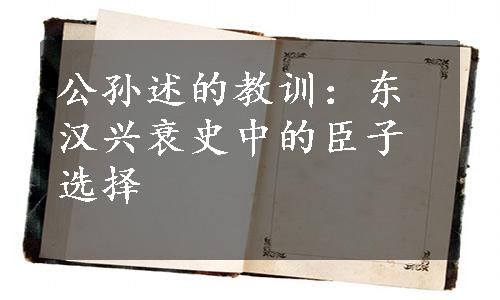 公孙述的教训：东
汉兴衰史中的臣子
选择